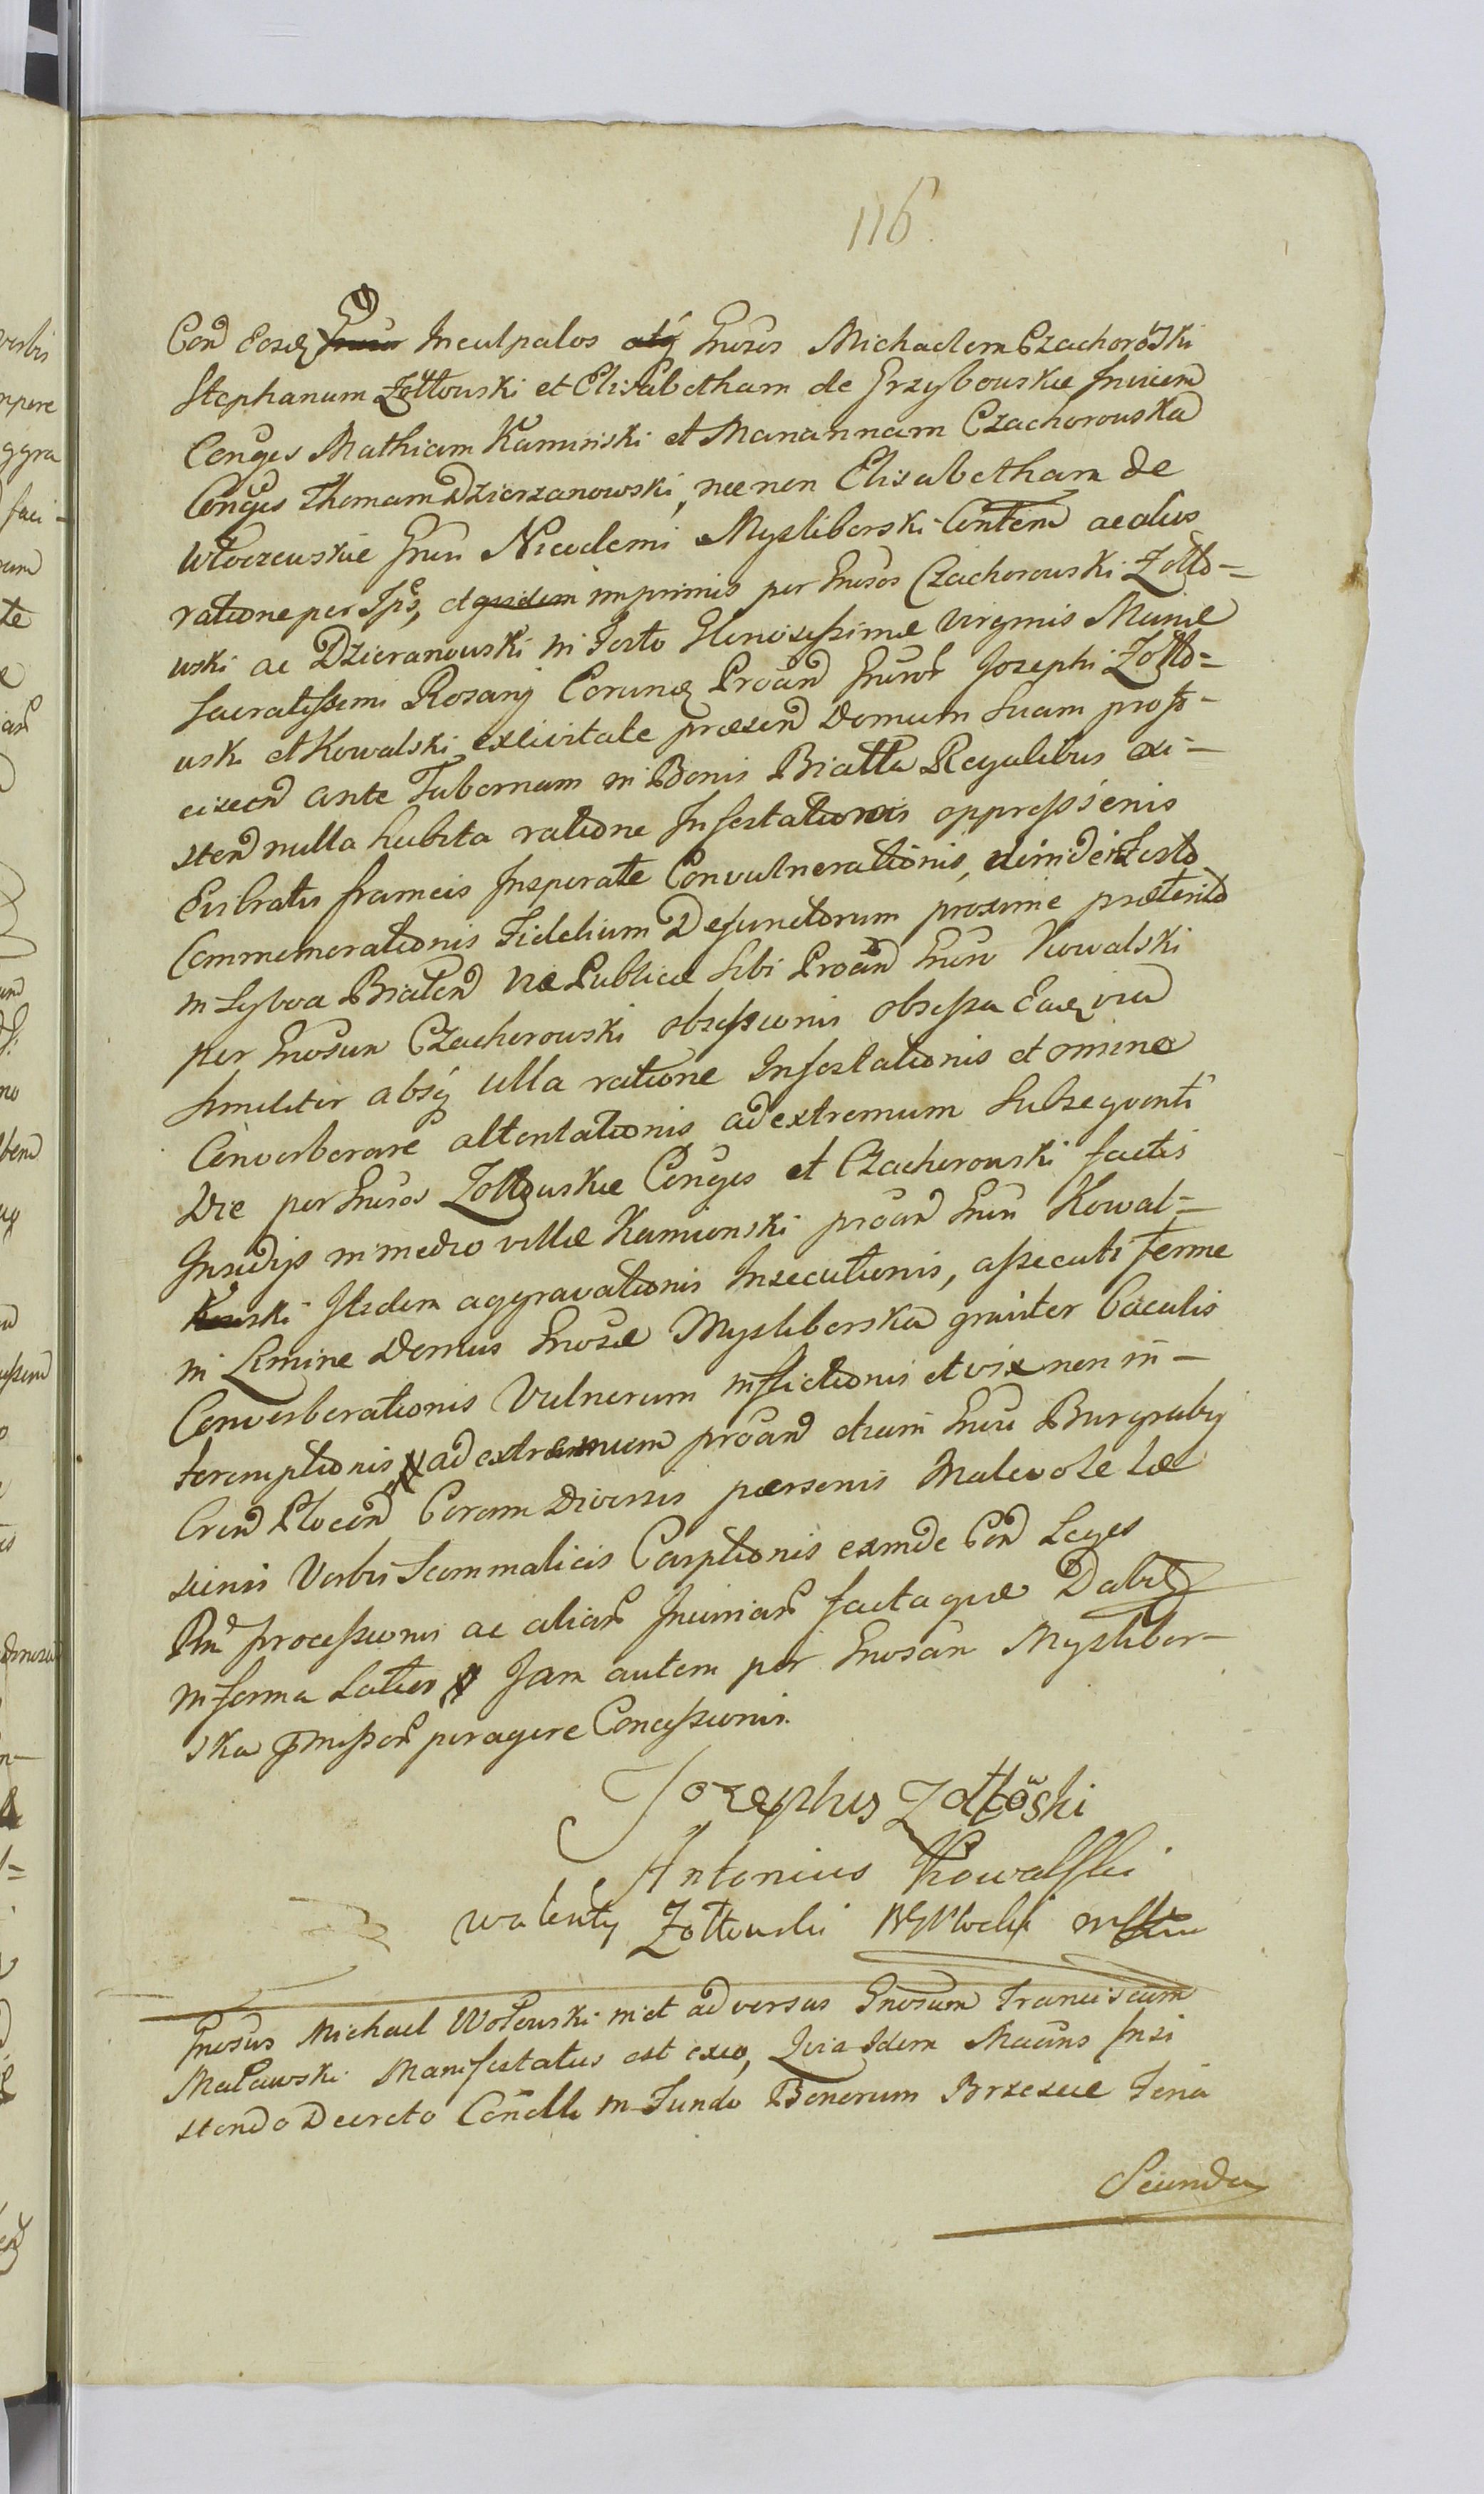 116.
Con̄d Eosdē Inculpatos Gnosos Michaelem Czachorowski
Stephanum Zołtowski et Elisabetham de Grzybouskie Inuicem
Conges Mathiam Kaminski et Mariannam Czachorouska
Conges Thomam Dzierzanowski, necnon Elisabetham de
Włoczewskie Gnei Nicodemi Mysliborski Contem ac alios
ratione per Ipos, et quidem imprimis per Gnosos Czachorouski Zołto=
uski ac Dzieranouski in Festo Gloriosissimæ Virginis Mariæ
Sacratissimi Rosarij Coronæ Proand Gneor Josephi Zołto=
uski et Kowalski exciuitate præsen Domum Suam profi-
ciscen ante Tabernam in Bonis Białła Regalibus exi-
sten nulla habita ratione Infestationis oppressionis
Euibratis frameis Insperate Conuulnerationis, deinde in Festo
Commemorationis Fidelium Defunctorum proxime præterito
in Sylva Bialen viæ Publicæ Sibi Proand Gneo Kowalski
per Gnosum Czachorouski obsessionis obsessa Eadē via
Similiter absq ulla ratione Infestationis et omine
Conuerberare attentationis ad extremum Subsequenti
Die per Gnosos Zołtouskie Conges et Czachorouski factis
Insidijs in medio villæ Kamionski proand Gneu Kowal=
ski Itidem aggravationis Insecutionis, assecuti ferme
in Limine Domus Gnosæ Mysliborska grauiter baculis
Conuerberationis Vulnerum inflictionis et vix non in-
teremptionis ad extremum proand etiam Gneu Burgraby
Cren Plocen Coram Diversis personis Maleuole læ
sionis Verbis Scommaticis Carptionis exinde Con Leges
Rni processionis ac aliar Iniuriar facta que Dabit
in forma Latior Jam autem per Gnosam Mysliber-
ska pmissor peragere Concessionis.
Jozephus Zołtowski
Antonius Kowalski
Walenty Zołtowski
Gnosus Michael Wołouski mct adversus Gnosum Franciscum
Małauski Manifestatus est exeo, Quia Idem Maans Insi
stendo Decreto Condli in Fundo Bonorum Brzescie Feria
Secunda